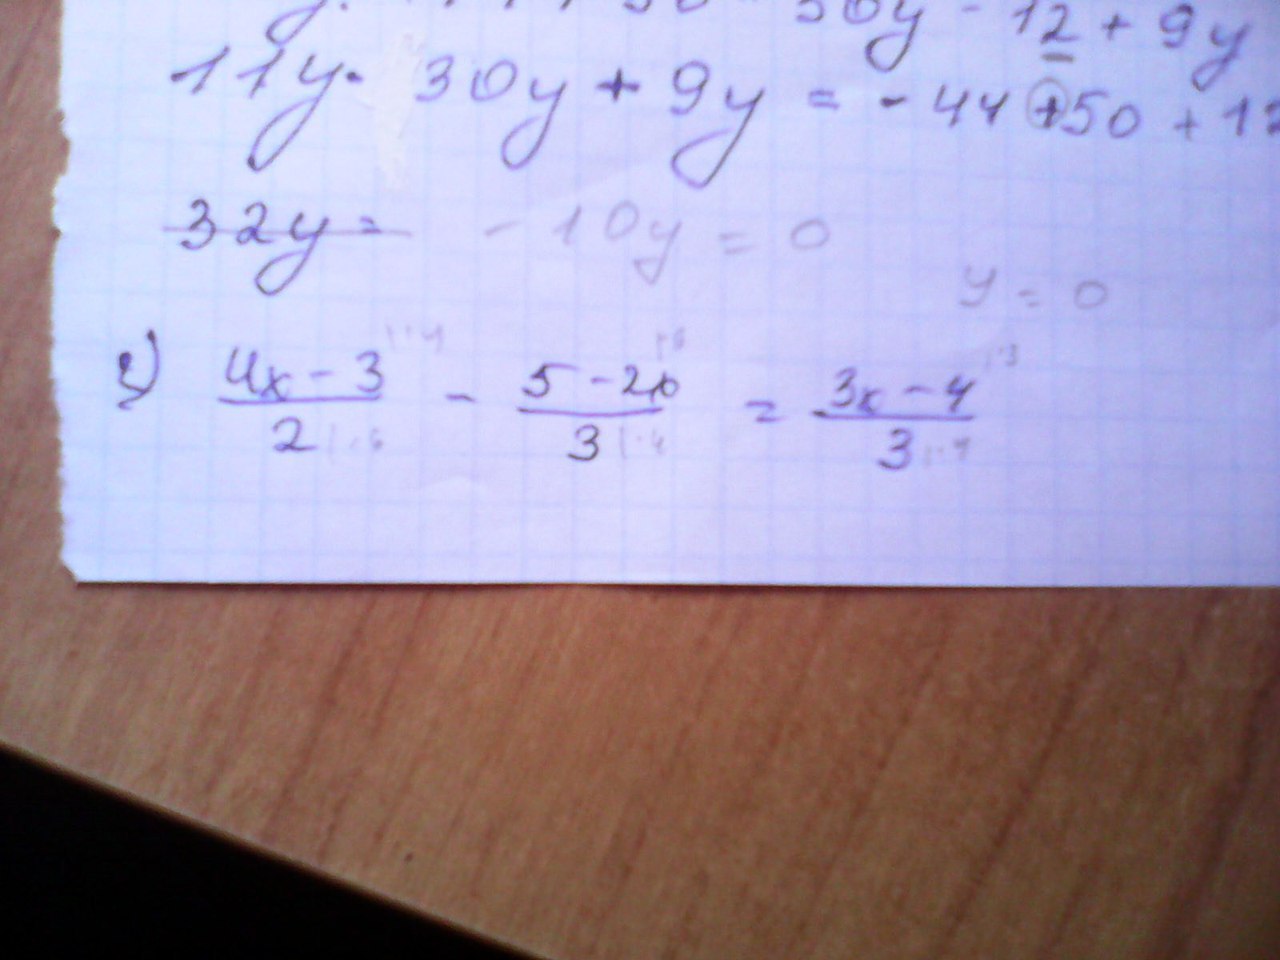 30y - 12 + 9y
11y - 30y + 9y = - 44 + 50 + 12
32y = - 10y = 0
y = 0
4x - 3 / 2 - 5 - 2x / 3 = 3x - 4 / 3